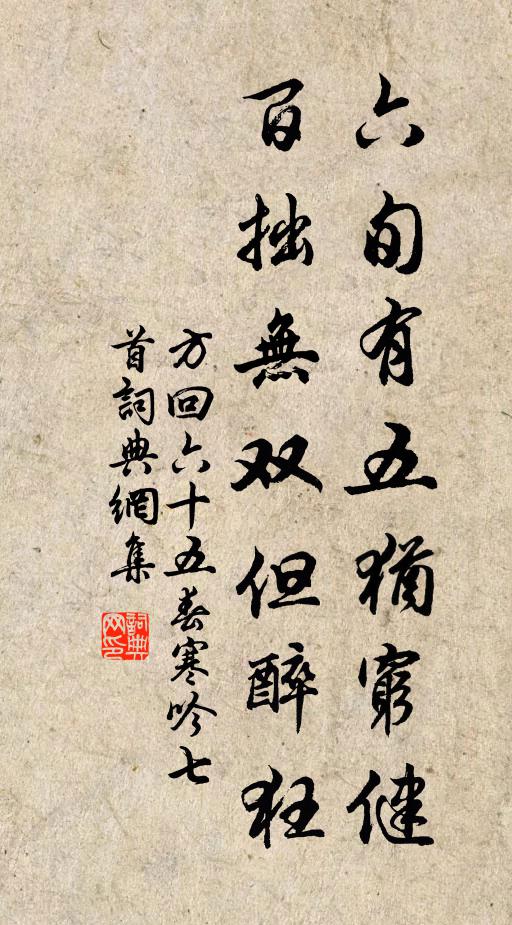 六旬有五猶窮健
百拙無双但醉狂
方回六十五春寒吟七
首詞典網集
詞典网印